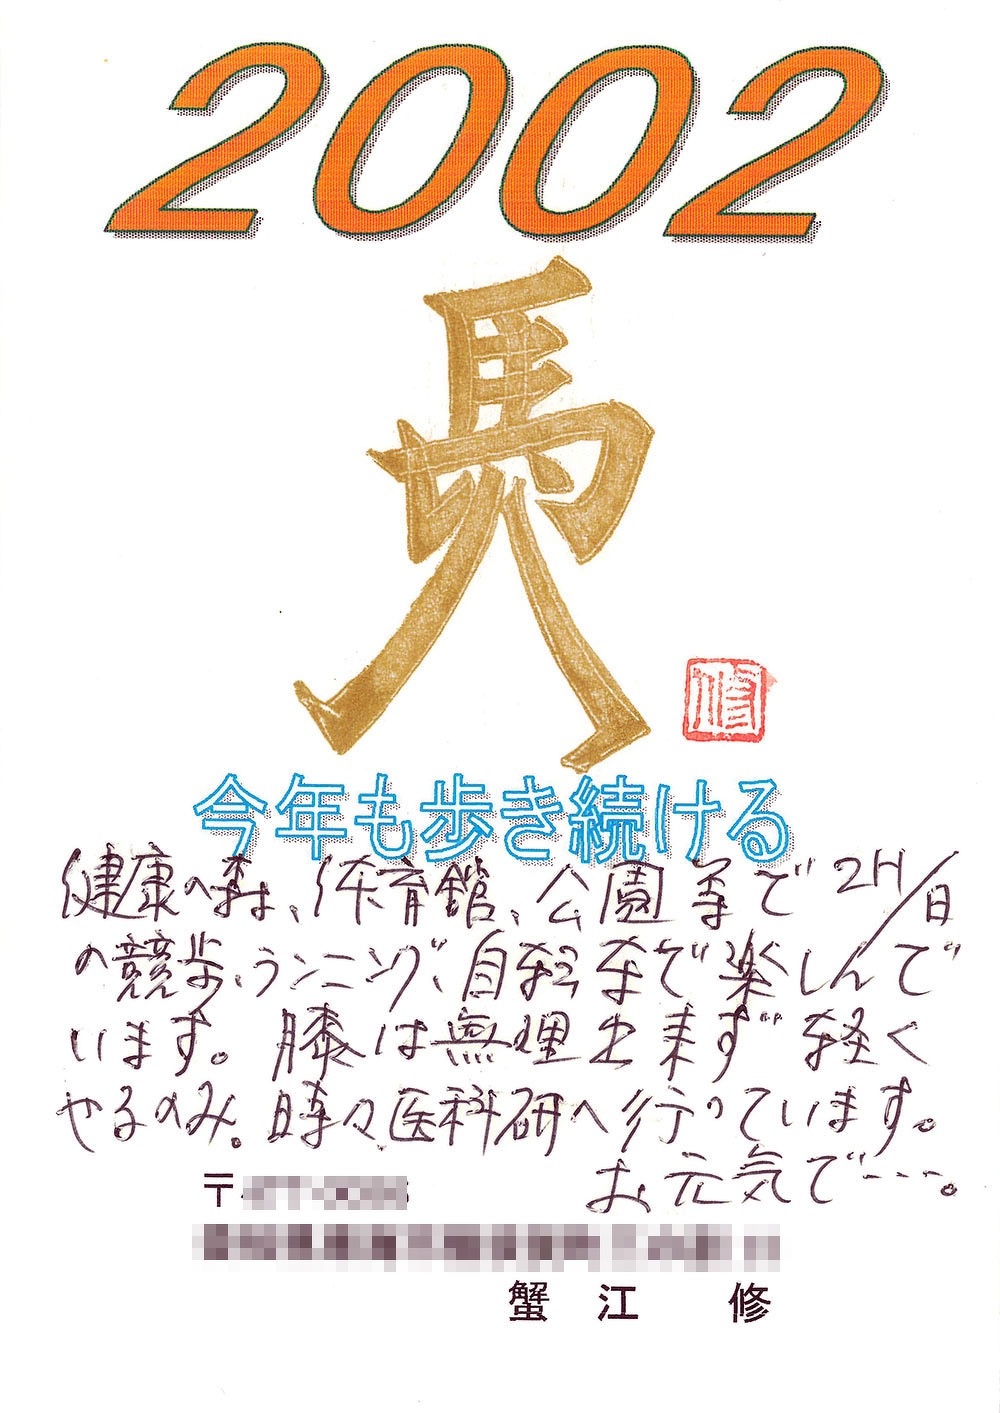 2002
馬
修
今年も歩き続ける
健康の森、体育館、公園等で2H/日
の競歩、ランニング、自転車で楽しんで
います。膝は無理出来ず軽く
やるのみ。時々医科研へ行っています。
お元気で---。
〒
蟹江 修